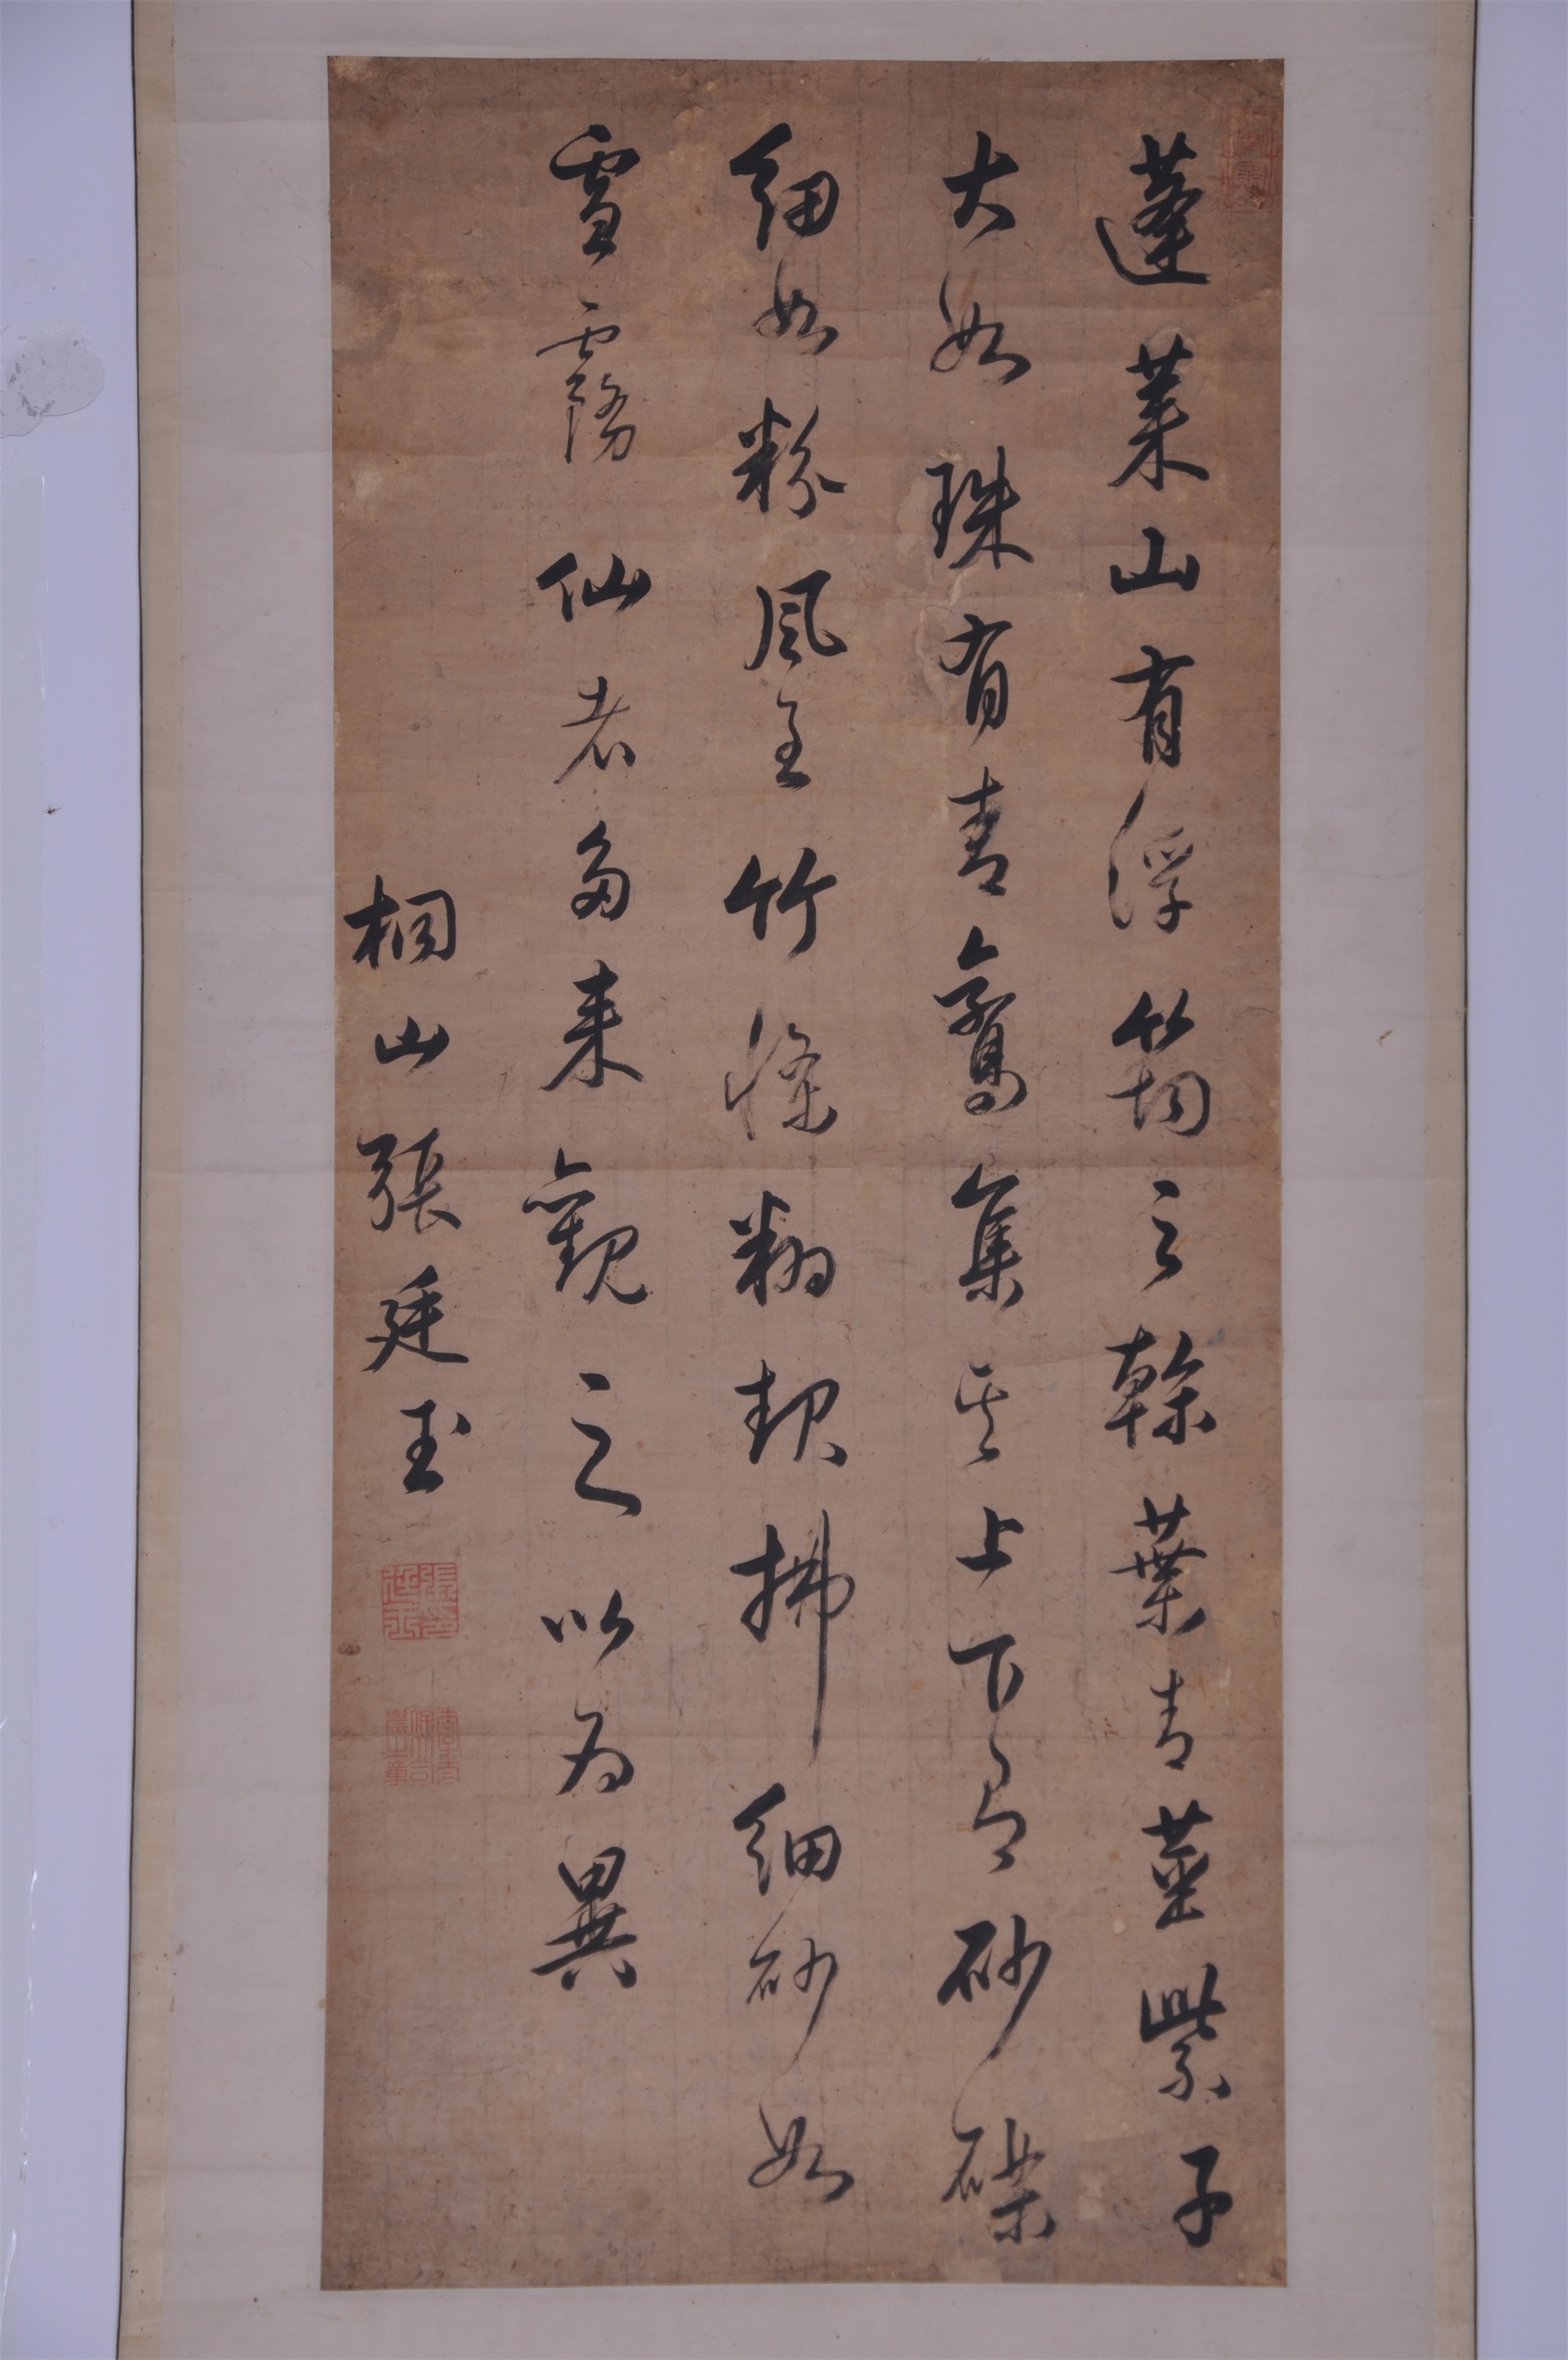 蓬莱山有浮筠之簳葉青莖紫子
大如珠有青鸞集其上下有砂礫
細如粉風至竹條翻起拂細砂如
雪霧仙者多来觀之以為異
桐山張廷玉
張廷玉印